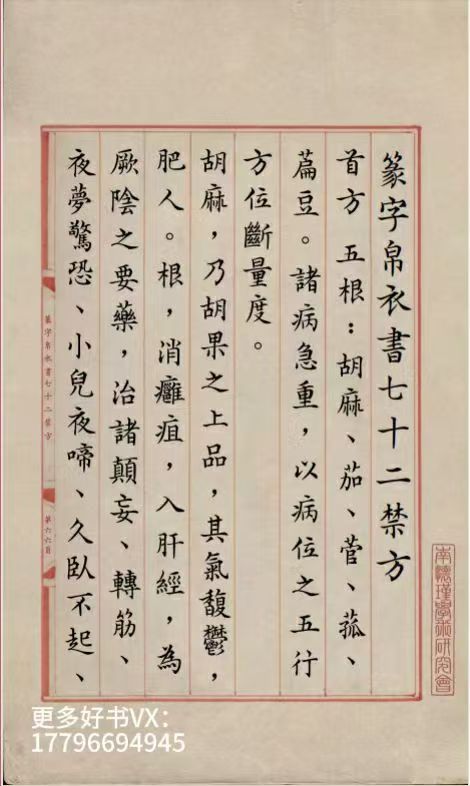 篆字帛衣書七十二禁方
首方 五根：胡麻、茄、菅、菰、
萹豆。諸病急重，以病位之五行
方位斷量度。
胡麻，乃胡果之上品，其氣馥鬱，
肥人。根，消癰疽，入肝經，為
厥陰之要藥，治諸顛妄、轉筋、
夜夢驚恐、小兒夜啼、久臥不起、
篆字帛衣書七十二禁方
第六六頁
南懷瑾學術研究會
更多好书VX：
17796694945